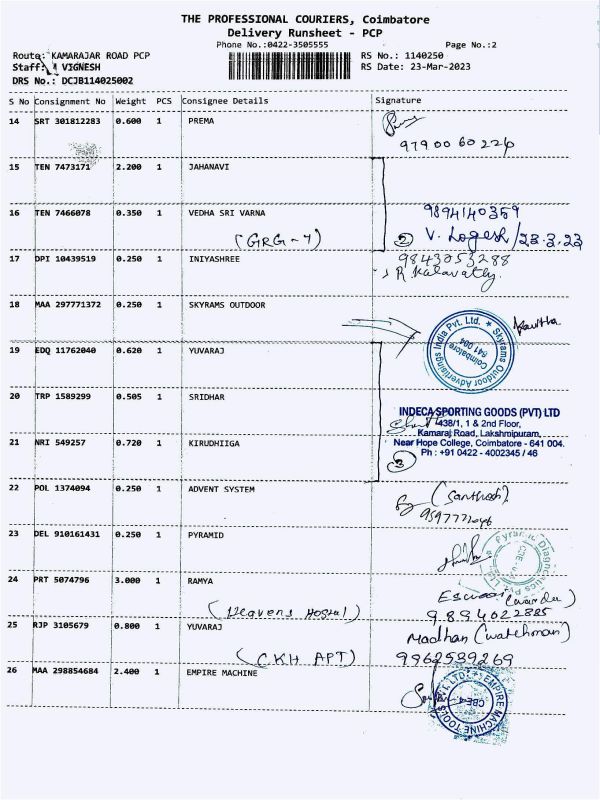 THE PROFESSIONAL COURIERS, Coimbatore
Delivery Runsheet - PCP
Phone No.:0422-3505555 Page No.:2
Route: KAMARAJAR ROAD PCP RS No.: 1140250
Staff: VIGNESH RS Date: 23-Mar-2023
DRS No.: DCJB114025002
S No Consignment No Weight PCS Consignee Details Signature
14 SRT 301812283 0.600 1 PREMA
97900 60226
15 TEN 7473171 2.200 1 JAHANAVI
16 TEN 7466078 0.350 1 VEDHA SRI VARNA 9894140359
(GRG-4) 2 V. Logesh/23.3.23
17 DPI 10439519 0.250 1 INIYASHREE 9843053288
R Kalavathy.
18 MAA 297771372 0.250 1 SKYRAMS OUTDOOR
Kavitha
Skyrams Outdoor Advertisings India Pvt. Ltd. ★
Coimbatore
641 004
19 EDQ 11762040 0.620 1 YUVARAJ
20 TRP 1589299 0.505 1 SRIDHAR
INDECA SPORTING GOODS (PVT) LTD
438/1, 1 & 2nd Floor,
Kamaraj Road, Lakshmipuram,
21 NRI 549257 0.720 1 KIRUDHIIGA Near Hope College, Coimbatore - 641 004.
Ph : +91 0422 - 4002345 / 46
3
22 POL 1374094 0.250 1 ADVENT SYSTEM (Santhosh)
23 DEL 910161431 0.250 1 PYRAMID
Pyramid Diagnostics Pvt Ltd
24 PRT 5074796 3.000 1 RAMYA
(Heavens Hostel) 9894022885
25 RJP 3105679 0.800 1 YUVARAJ Madhan (watchman)
(CKH APT) 9962539269
26 MAA 298854684 2.400 1 EMPIRE MACHINE
EMPIRE MACHINE TOOLS
CBE-4